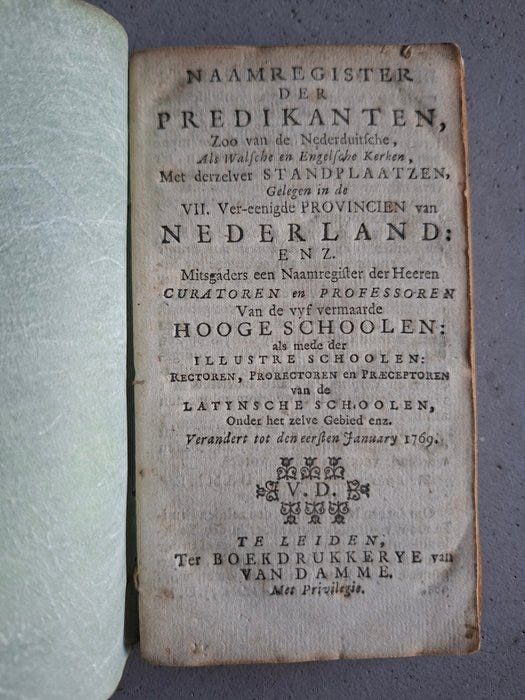 NAAMREGISTER
DER
PREDIKANTEN,
Zoo van de Nederduitsche,
Als Walsche en Engelsche Kerken,
Met derzelver STANDPLAATZEN,
Gelegen in de
VII. Ver-eenigde PROVINCIEN van
NEDERLAND:
ENZ.
Mitsgaders een Naamregister der Heeren
CURATOREN en PROFESSOREN
Van de vyf vermaarde
HOOGE SCHOOLEN:
als mede der
ILLUSTRE SCHOOLEN:
RECTOREN, PRORECTOREN en PRÆCEPTOREN
van de
LATYNSCHE SCHOOLEN,
Onder het zelve Gebied enz.
Verandert tot den eersten January 1769.
V. D.
TE LEIDEN,
Ter BOEKDRUKKERYE van
VAN DAMME.
Met Privilegie.